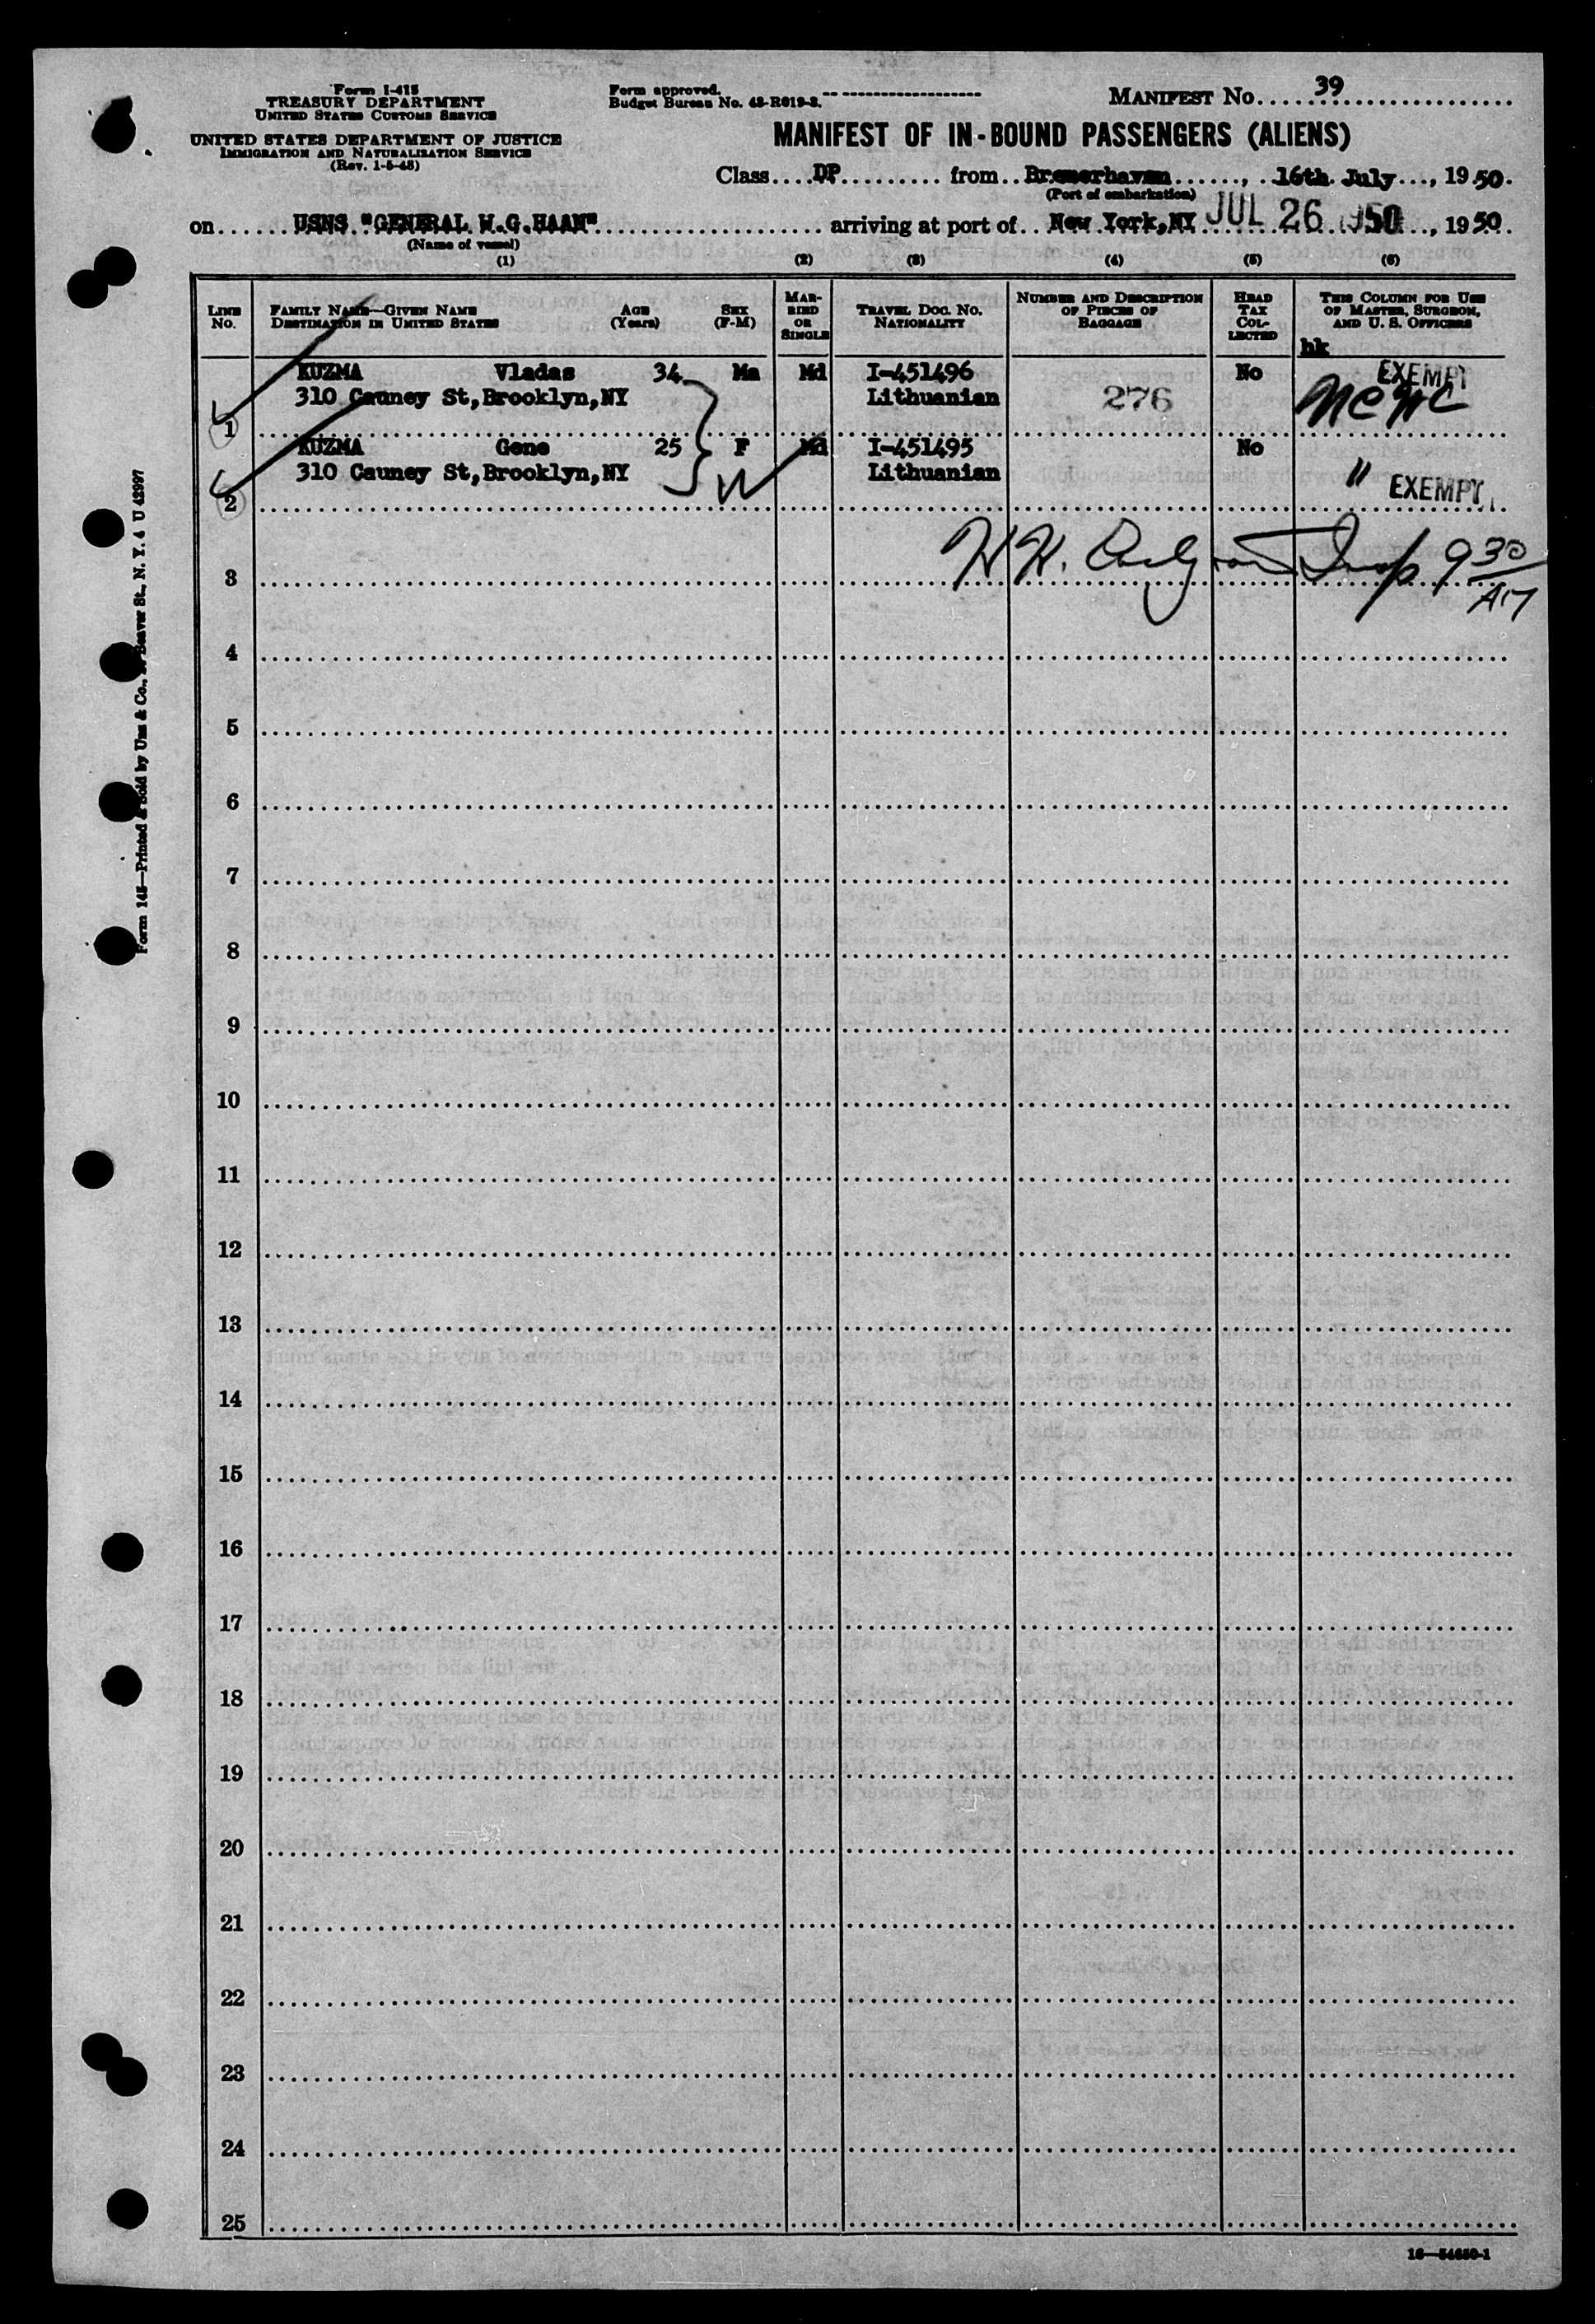 Form I-415
TREASURY DEPARTMENT
UNITED STATES CUSTOMS SERVICE
UNITED STATES DEPARTMENT OF JUSTICE
IMMIGRATION AND NATURALIZATION SERVICE
(Rev. 1-5-45)
Form approved.
Budget Bureau No. 43-R019-3.
MANIFEST No. 39
MANIFEST OF IN-BOUND PASSENGERS (ALIENS)
Class DP from Bremerhaven, 16th July, 1950.
(Port of embarkation)
on USNS "GENERAL W.G.HAAN" arriving at port of New York,NY JUL 26 1950, 1950
(Name of vessel)
(1) (2) (3) (4) (5) (6)
LINE No. FAMILY NAME—GIVEN NAME DESTINATION IN UNITED STATES AGE (Years) SEX (F-M) MARRIED OR SINGLE TRAVEL DOC. NO. NATIONALITY NUMBER AND DESCRIPTION OF PIECES OF BAGGAGE HEAD TAX COLLECTED THIS COLUMN FOR USE OF MASTER, SURGEON, AND U. S. OFFICERS
hk
KUZMA Vladas 34 Ma Md I-451496 No EXEMPT
310 Cauney St,Brooklyn,NY Lithuanian 276 NCWC
1
KUZMA Gene 25 F Md I-451495 No
310 Cauney St,Brooklyn,NY Lithuanian " EXEMPT
2
H. Insp 9 30 AM
3
4
5
6
7
8
9
10
11
12
13
14
15
16
17
18
19
20
21
22
23
24
25
16—54650-1
Form 145—Printed & Sold by Unz & Co., Beaver St., N. Y. 4 U 42997